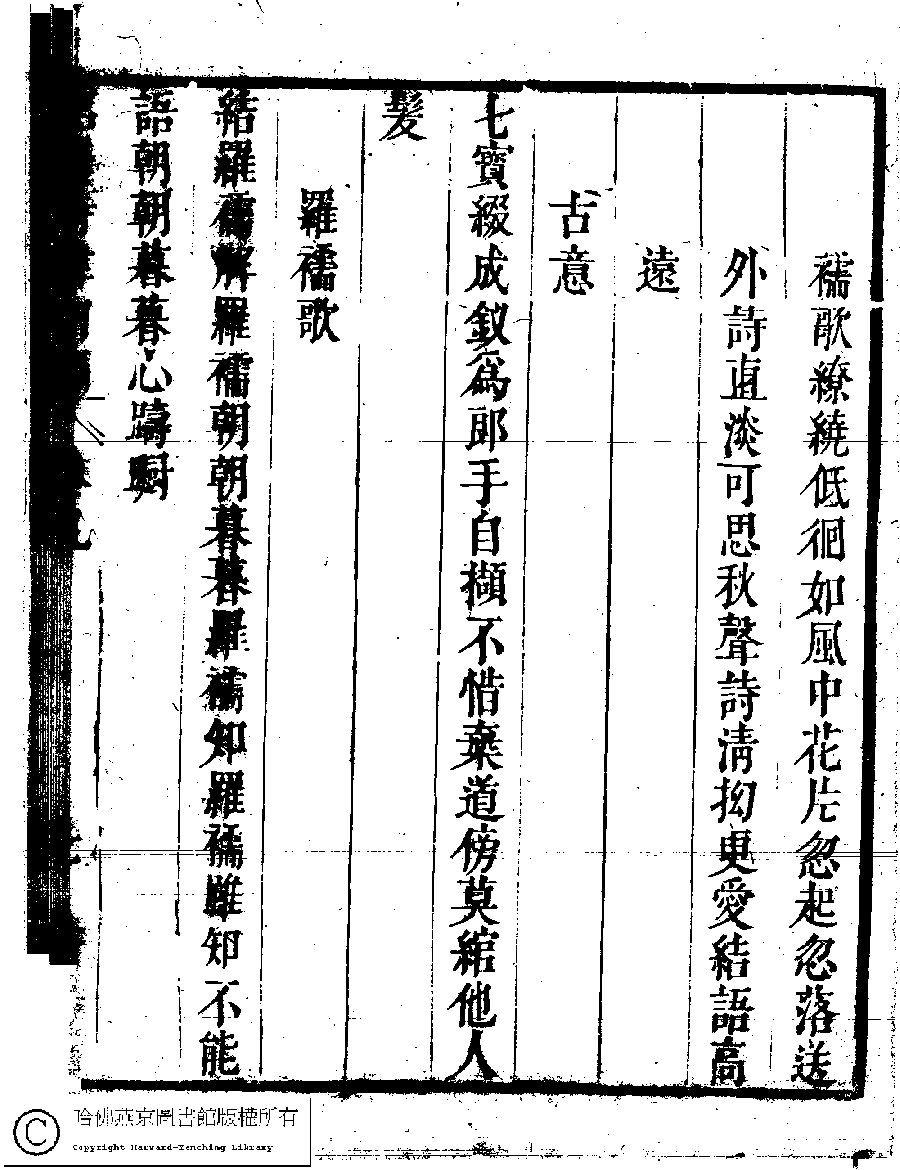 襦歌繚繞低徊如風中花片忽起忽落送
外詩直淡可思秋聲詩清拗更愛結語高
遠
古意
七寶綴成釵爲郎手自擷不惜棄道傍莫綰他人
髮
羅襦歌
結羅襦解羅襦朝朝暮暮羅襦知羅襦雖知不能
語朝朝暮暮心躊躕
哈佛燕京圖書館版權所有
Copyright Harvard-Yenching Library